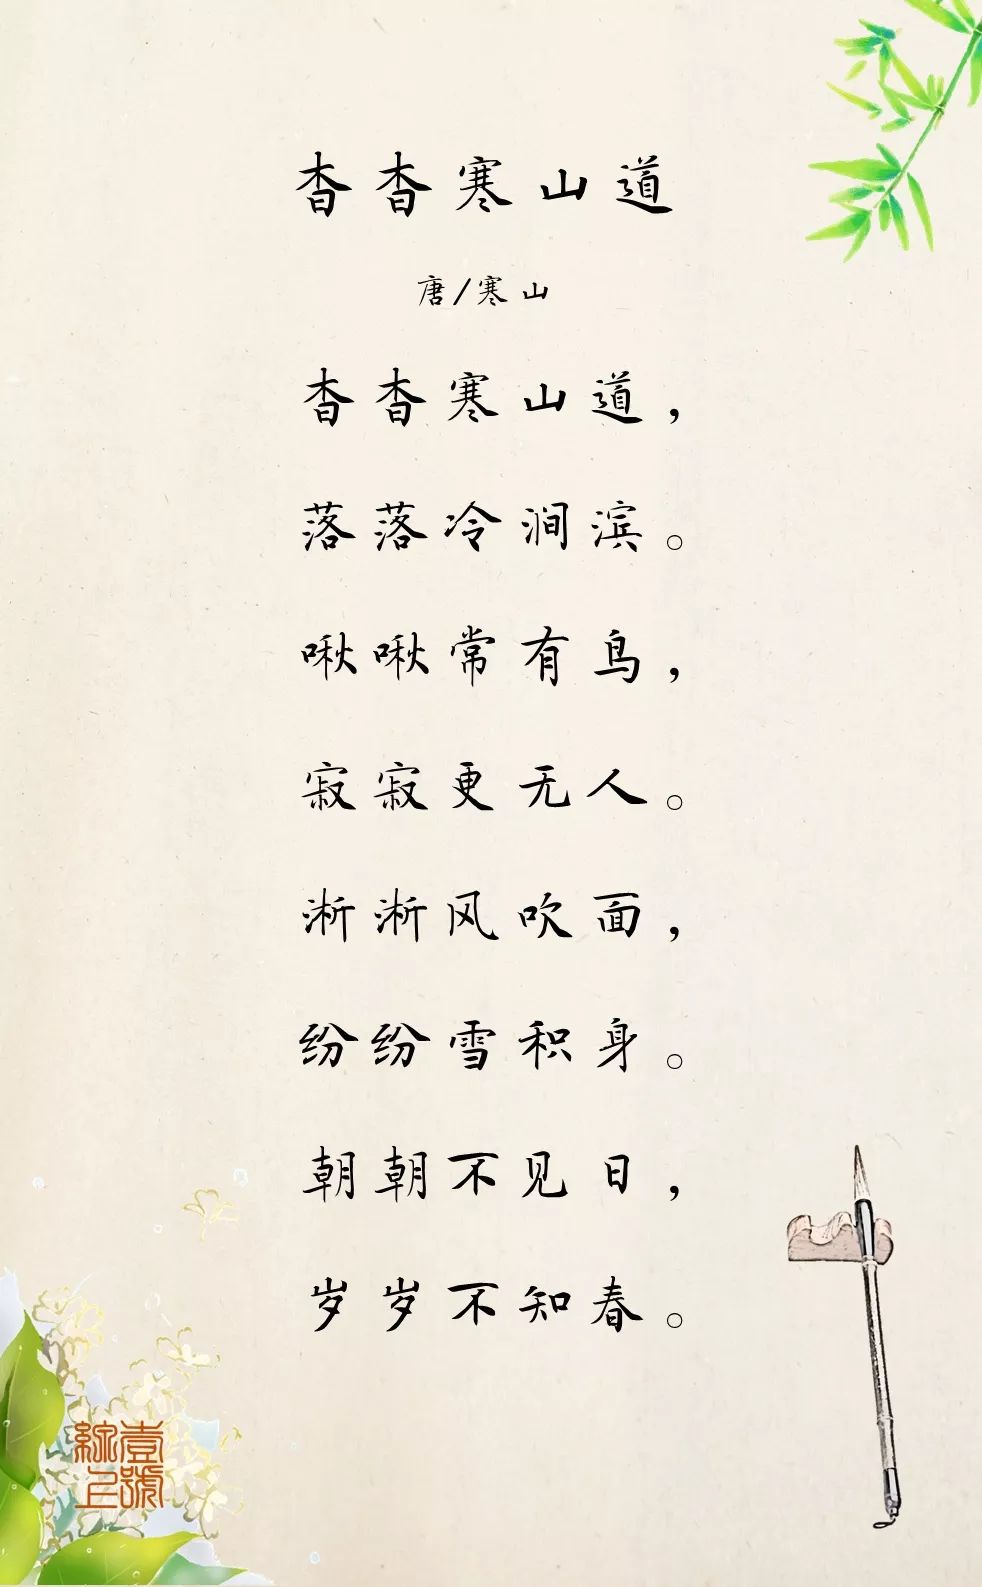 杳杳寒山道
唐/寒山
杳杳寒山道，
落落冷涧滨。
啾啾常有鸟，
寂寂更无人。
淅淅风吹面，
纷纷雪积身。
朝朝不见日，
岁岁不知春。